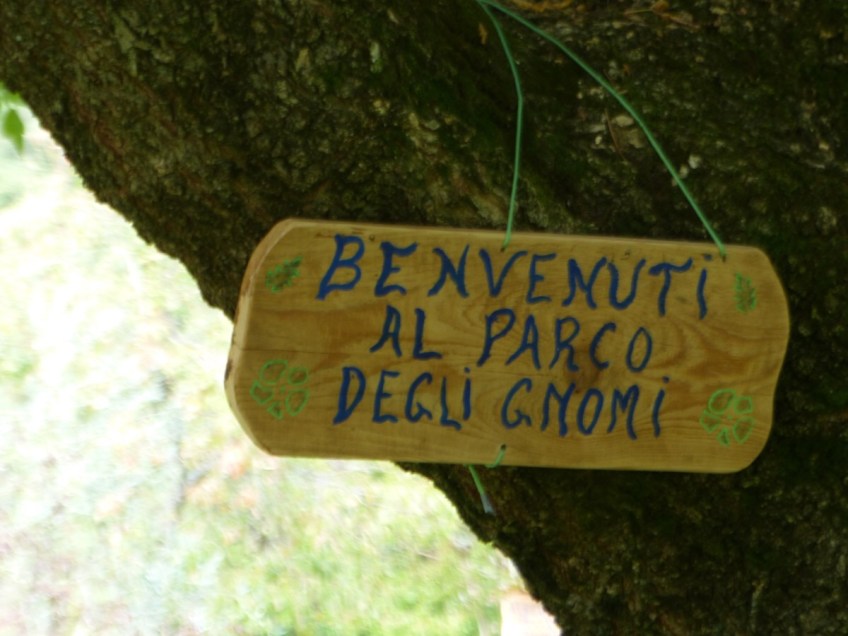 BENVENUTI
AL PARCO
DEGLI GNOMI